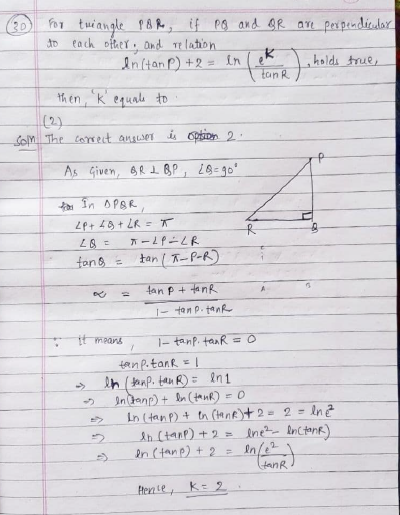 (20) For triangle PQR, if PQ and QR are perpendicular
to each other, and relation
ln(tanP) + 2 = ln (e^K / tanR), holds true,
then, 'K' equals to.
(2)
Soln The correct answer is option 2.
As given, QR ⊥ QP, ∠Q = 90°
P
In ΔPQR,
∠P + ∠Q + ∠R = π
∠Q = π - ∠P - ∠R
R Q
tanQ = tan (π - P - R)
∝ = (tanP + tanR) / (1 - tanP.tanR)
∴ it means, 1 - tanP.tanR = 0
tanP.tanR = 1
⇒ ln (tanP.tanR) = ln1
⇒ ln(tanP) + ln(tanR) = 0
⇒ ln(tanP) + ln(tanR) + 2 = 2 = lne²
⇒ ln(tanP) + 2 = lne² - ln(tanR)
⇒ ln(tanP) + 2 = ln (e² / tanR)
Hence, K = 2.